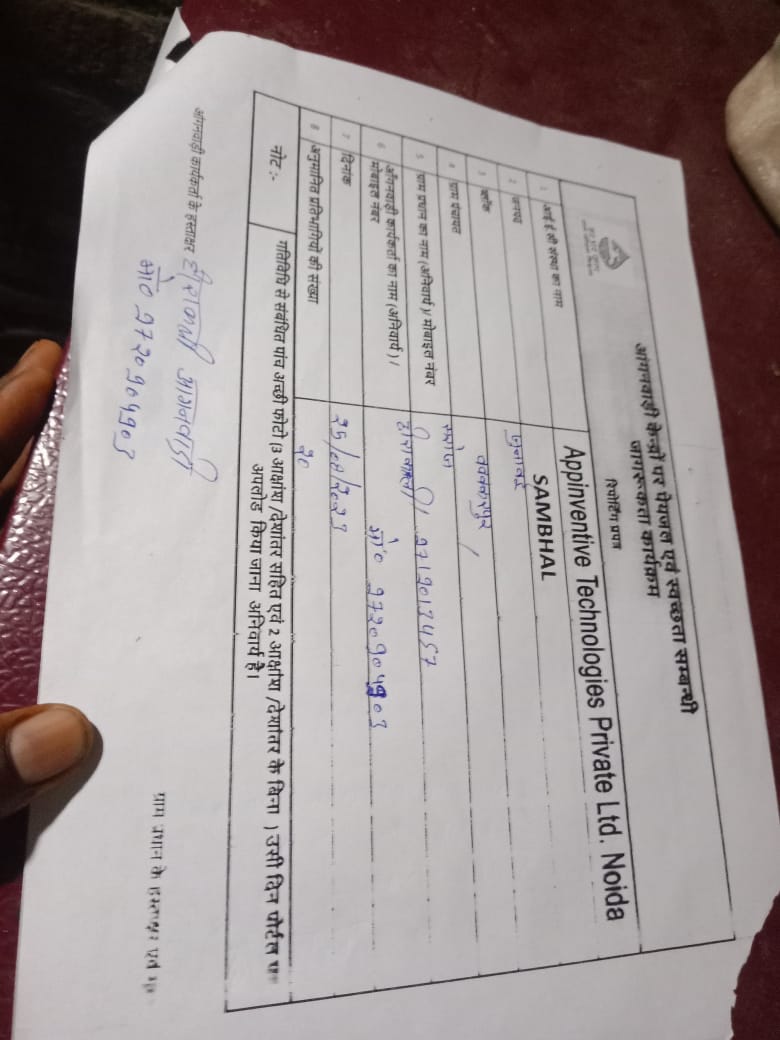 आंगनवाड़ी केन्द्रों पर पेयजल एवं स्वच्छता सम्बन्धी
जागरूकता कार्यक्रम
रिपोर्टिंग प्रपत्र
1 आई ई सी संस्था का नाम Appinventive Technologies Private Ltd. Noida
2 जनपद SAMBHAL
3 ब्लॉक
4 ग्राम पंचायत
5 ग्राम प्रधान का नाम (अनिवार्य)/ मोबाइल नंबर
6 आँगनवाड़ी कार्यकर्ता का नाम (अनिवार्य) /
मोबाइल नंबर मो० 9720904903
7 दिनांक 25/08/2023
8 अनुमानित प्रतिभागियो की संख्या 20
नोट :- गतिविधि से संबंधित पांच अच्छी फोटो (3 आक्षांश /देशांतर सहित एवं 2 आक्षांश /देशांतर के बिना ) उसी दिन पोर्टल पर
अपलोड किया जाना अनिवार्य है।
आँगनवाड़ी कार्यकर्ता के हस्ताक्षर
मो० 9720904903
ग्राम प्रधान के हस्ताक्षर एवं